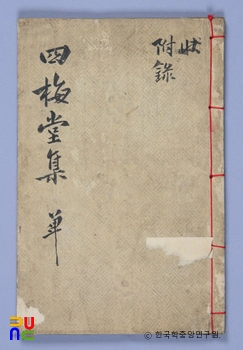 狀
附錄
四梅堂集 單
ⓒ 한국학중앙연구원